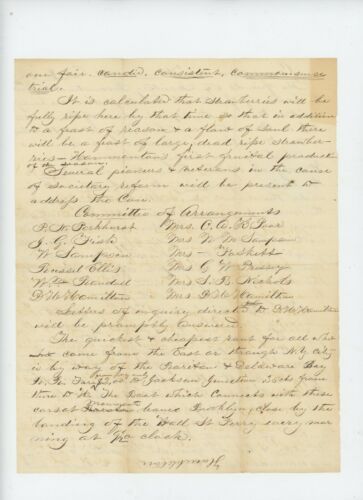 one fair. candid, consistent, commonsense
trial.
It is calculated that strawberries will be
fully ripe here by that time so that in addition
to a feast of reason & a flow of Soul there
will be a feast of large, dead ripe Strawber-
ries - Hammontons first grand product
of the season.
Several pioneers & veterans in the cause
of societary reform will be present to
address the Con.
Committee of Arrangements
Mrs. C. A. K. Poor
J. G. Fish
Mrs W. M. Sampson
W Sampson
Mrs - Faskett
Russel Ellis
Mrs G W Pressey
Mrs. L. B. Nichols
D W Hamilton
Mrs D W Hamilton
Letters of inquiry directed to D W Hamilton
will be promptly answered.
The quickest & cheapest rout for all who
come from the East or through N.Y. City
is by way of the Raritan & Delaware Bay
R. R. to Jackson Junction 35 cts from
there to H. The Boat which Connects with these
cars at leaves Brooklyn, close by the
landing of the Wall St Ferry every mor
ning at o clock.
Hamilton